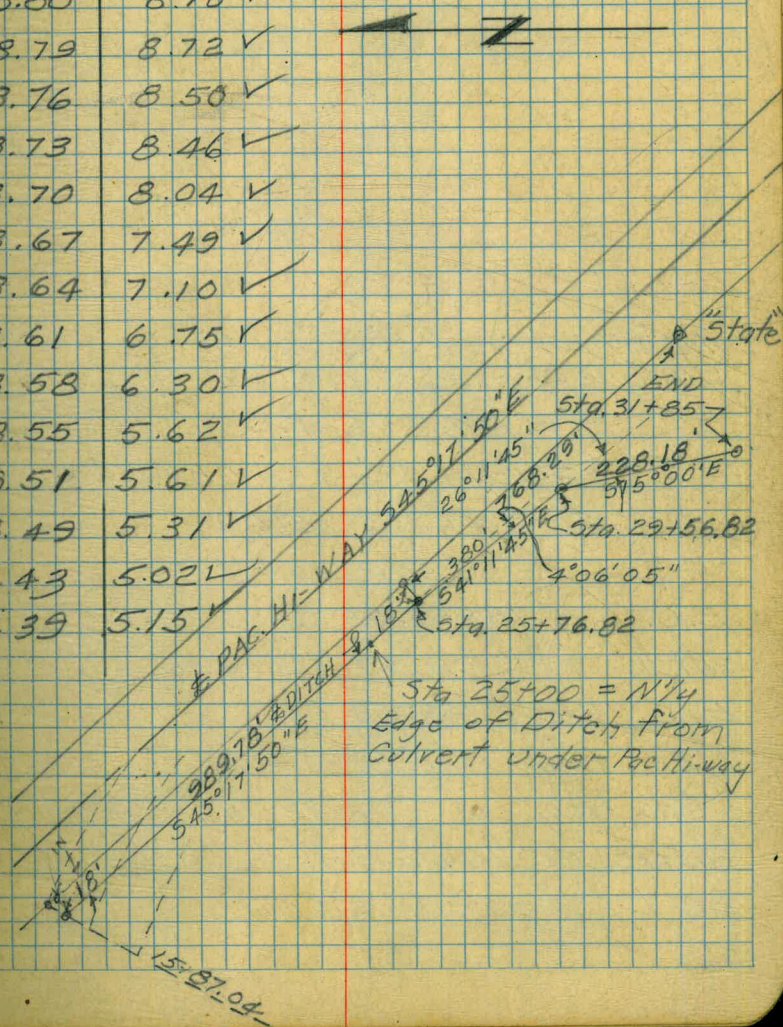 8.79 8.72 ✓
.76 8.50 ✓
.73 8.46 ✓
.70 8.04 ✓
.67 7.49 ✓
.64 7.10 ✓
.61 6.75 ✓
.58 6.30 ✓
.55 5.62 ✓
.51 5.61 ✓
.49 5.31 ✓
.43 5.02 ✓
.39 5.15 ✓
N
"State"
END
Sta. 31+85
228.18'
S75°00'E
Sta. 29+56.82
768.29'
26°11'45"
380'
S41°11'45"E
4°06'05"
Sta. 25+76.82
℄ PAC. HI-WAY S45°17'50"E
18'
Sta 25+00 = N'ly
Edge of Ditch from
Culvert under Pac Hi-way
989.78' ℄ DITCH
S45°17'50"E
18'
15+87.04